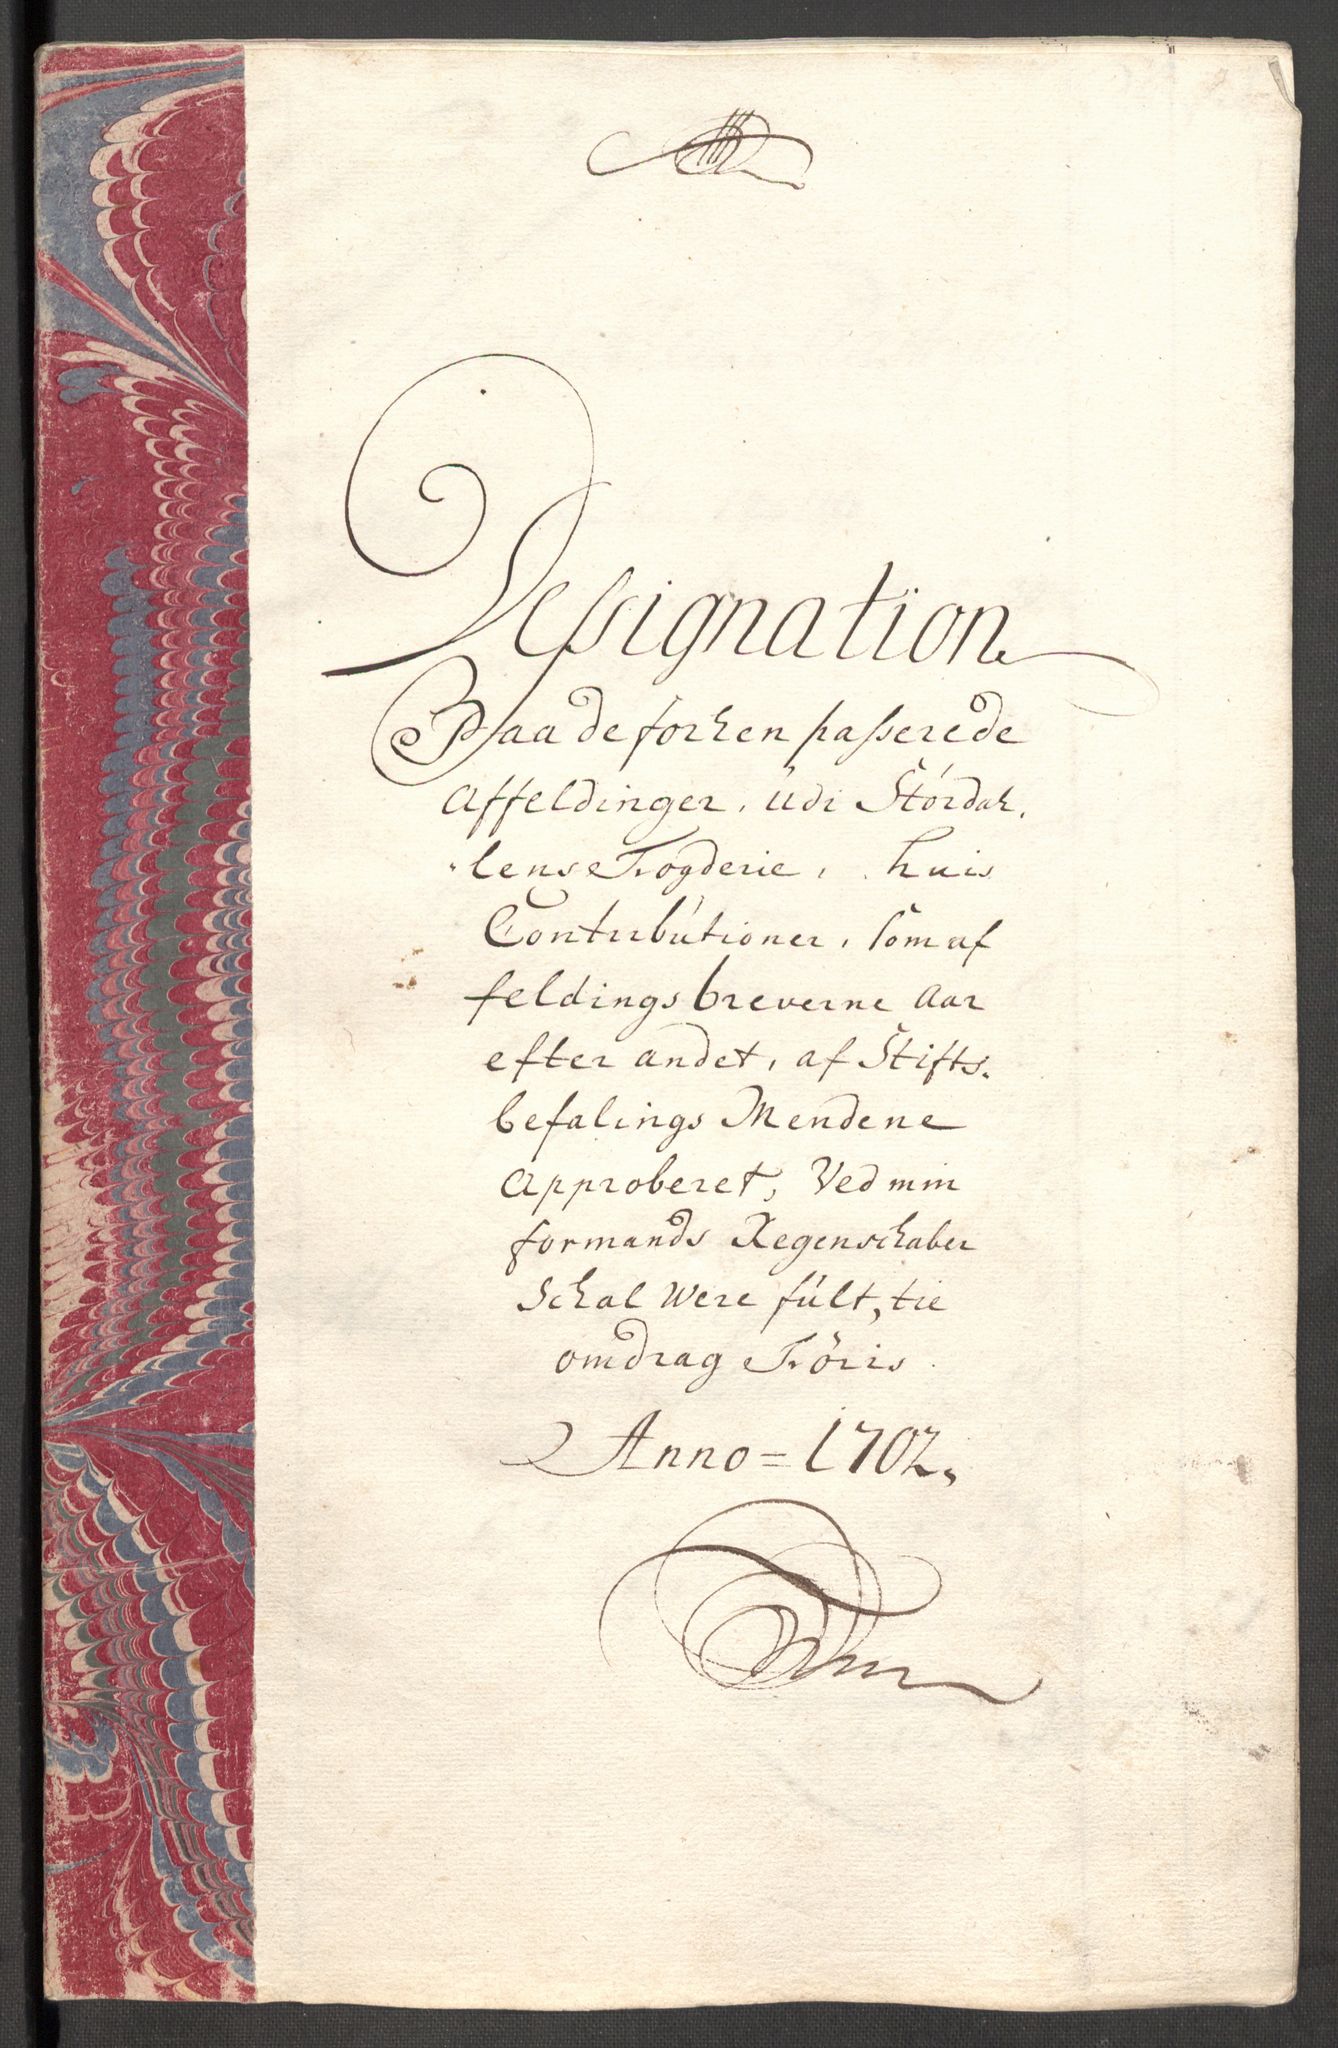 Dessignation
Paa de forhen passerede
affeldinger, udi Stórdah,
lens Fogderie, huis
Contributioner, som af
feldings breverne aar
efter andet, af Stifts-
befalings Mendene
approberet, Ved min
formands Regenschaber
schal were fült, tie
omdrag Föris
Anno = 1702,